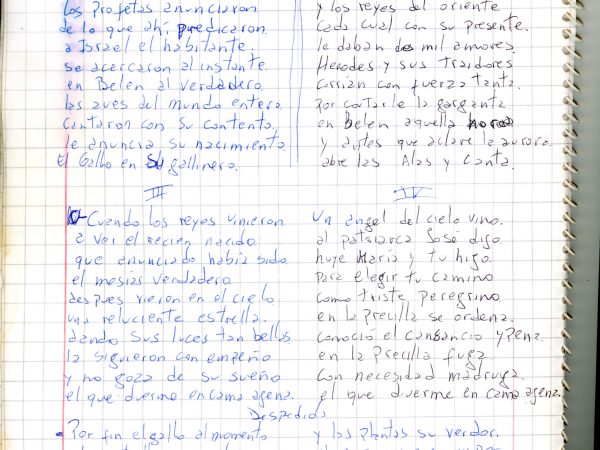 los Profetas anunciaron
de lo que ahi predicaron
a Israel el habitante.
se acercaron al instante
en Belen al verdadero
las aves del mundo entero
Cantaron con su contento,
le anuncia su nacimiento
El Gallo en su gallinero.
y los reyes del oriente
cada cual con su presente.
le daban dos mil amores
Herodes y sus traidores
Corrian con fuerza tanta
Por cortarle la garganta
en belen aquella hora
y antes que aclare la aurora
abre las Alas y Canta.
III
Cuando los reyes vinieron
a ver el recien nacido
que anunciado habia sido
el mesias verdadero
despues vieron en el cielo
una reluciente estrella.
dando sus luces tan bellas
la siguieron con empeño
y no goza de su sueño
el que duerme en cama agena.
IV
Un angel del cielo vino.
al patriarca José digo
huye Maria y tu higo
Para elegir tu camino
como triste peregrino
en la Precilla se ordena.
conocio el cansancio y pena
en la Precilla fuga
con necesidad madruga.
el que duerme en cama agena.
Despedida
Por fin el gallo al momento
y las plantas su verdor.